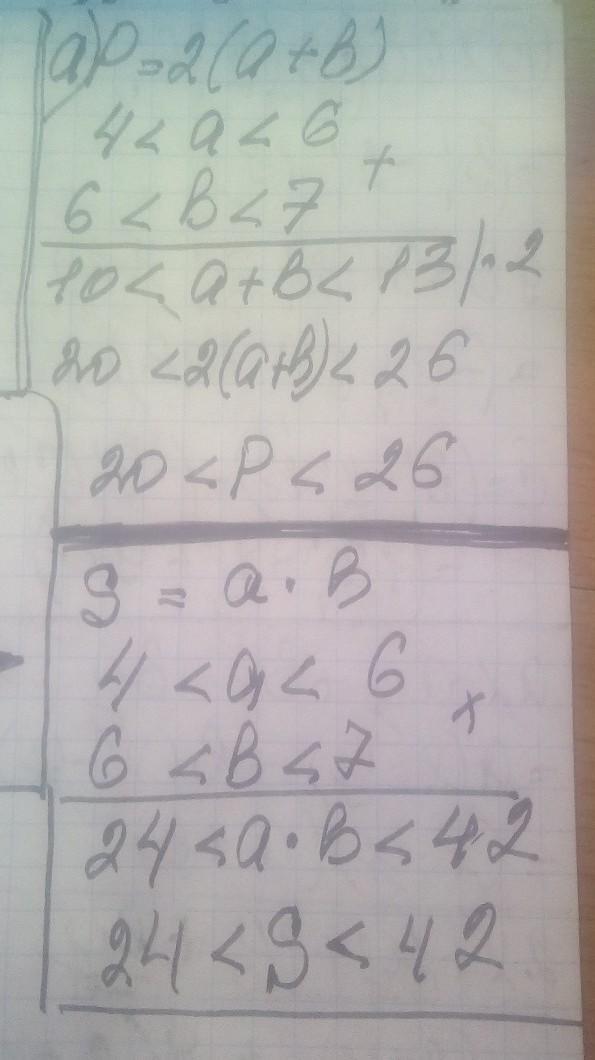 а) P = 2(a+b)
4 < a < 6
+
6 < b < 7
10 < a+b < 13 | · 2
20 < 2(a+b) < 26
20 < P < 26
S = a · b
4 < a < 6
×
6 < b < 7
24 < a · b < 42
24 < S < 42